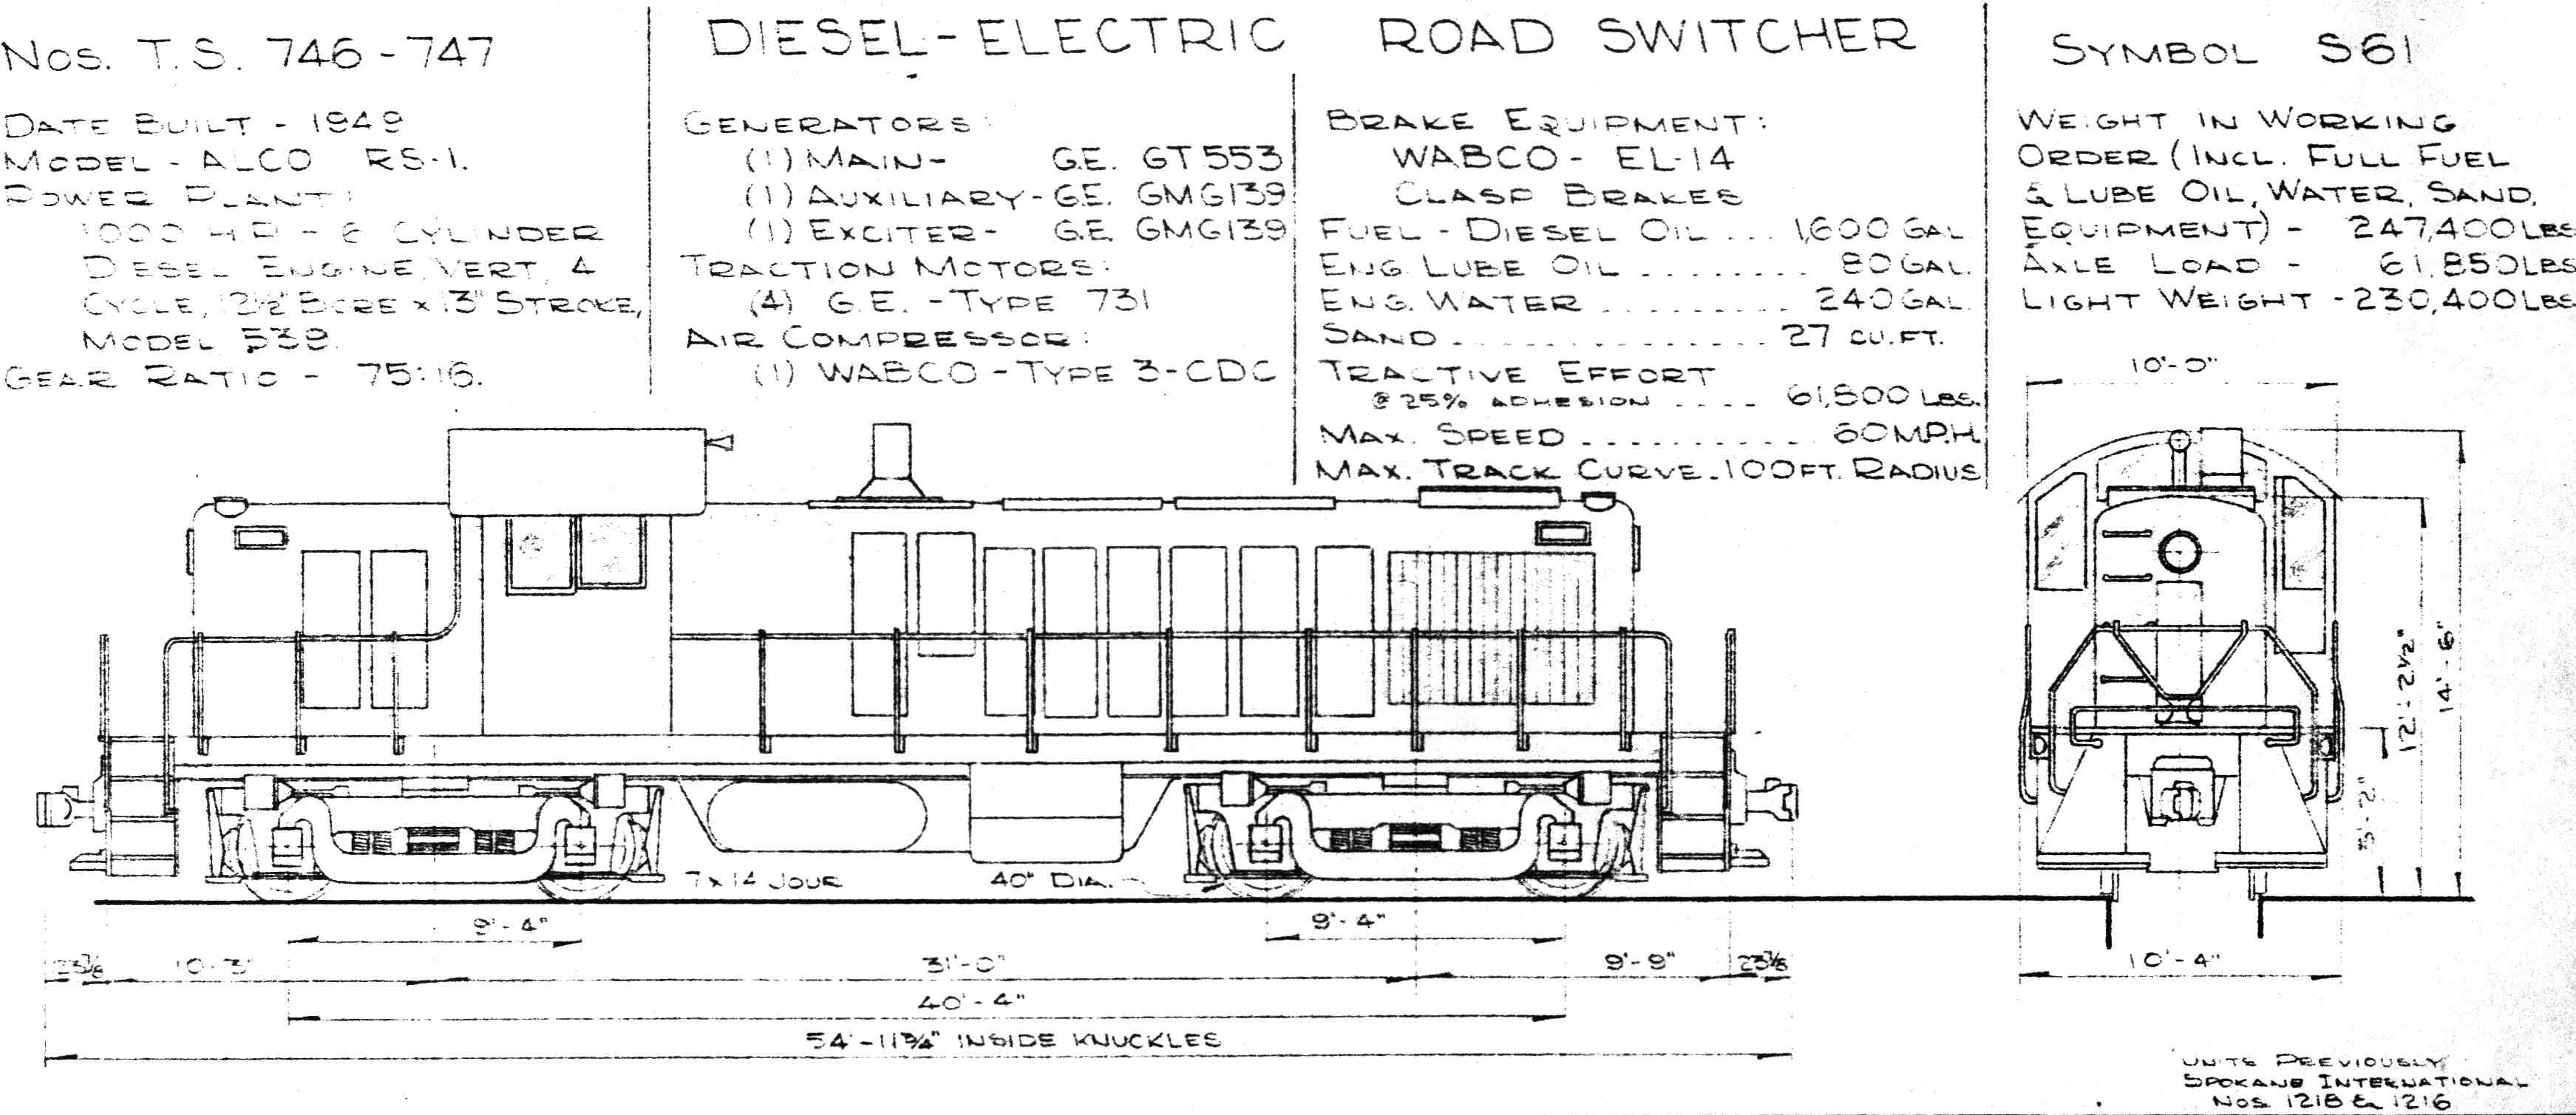 Nos. T.S. 746-747
DIESEL-ELECTRIC ROAD SWITCHER
SYMBOL S61
DATE BUILT - 1949
MODEL - ALCO RS-1.
POWER PLANT:
1000 HP - 6 CYLINDER
DIESEL ENGINE, VERT, 4
CYCLE, 12½" BORE x 13" STROKE,
MODEL 539.
GEAR RATIO - 75:16.
GENERATORS:
(1) MAIN- G.E. GT553
(1) AUXILIARY-G.E. GMG139
(1) EXCITER- G.E. GMG139
TRACTION MOTORS:
(4) G.E. - TYPE 731
AIR COMPRESSOR:
(1) WABCO - TYPE 3-CDC
BRAKE EQUIPMENT:
WABCO - EL-14
CLASP BRAKES
FUEL - DIESEL OIL ... 1,600 GAL.
ENG. LUBE OIL ........ 80 GAL.
ENG. WATER .......... 240 GAL.
SAND .............. 27 CU.FT.
TRACTIVE EFFORT
@ 25% ADHESION .... LBS.
MAX. SPEED .......... 60 M.P.H.
MAX. TRACK CURVE-100 FT. RADIUS
WEIGHT IN WORKING
ORDER (INCL. FULL FUEL
& LUBE OIL, WATER, SAND,
EQUIPMENT) - 247,400 LBS.
AXLE LOAD - 61,850 LBS.
LIGHT WEIGHT - 230,400 LBS.
10'-0"
12'-2½"
14'-6"
5'-2"
7 x 14 JOUR
40" DIA.
9'-4"
9'-4"
23⅞
10'-3"
31'-0"
9'-9"
23⅞
10'-4"
40'-4"
54'-11¾" INSIDE KNUCKLES
UNITS PREVIOUSLY
SPOKANE INTERNATIONAL
Nos. 1218 & 1216